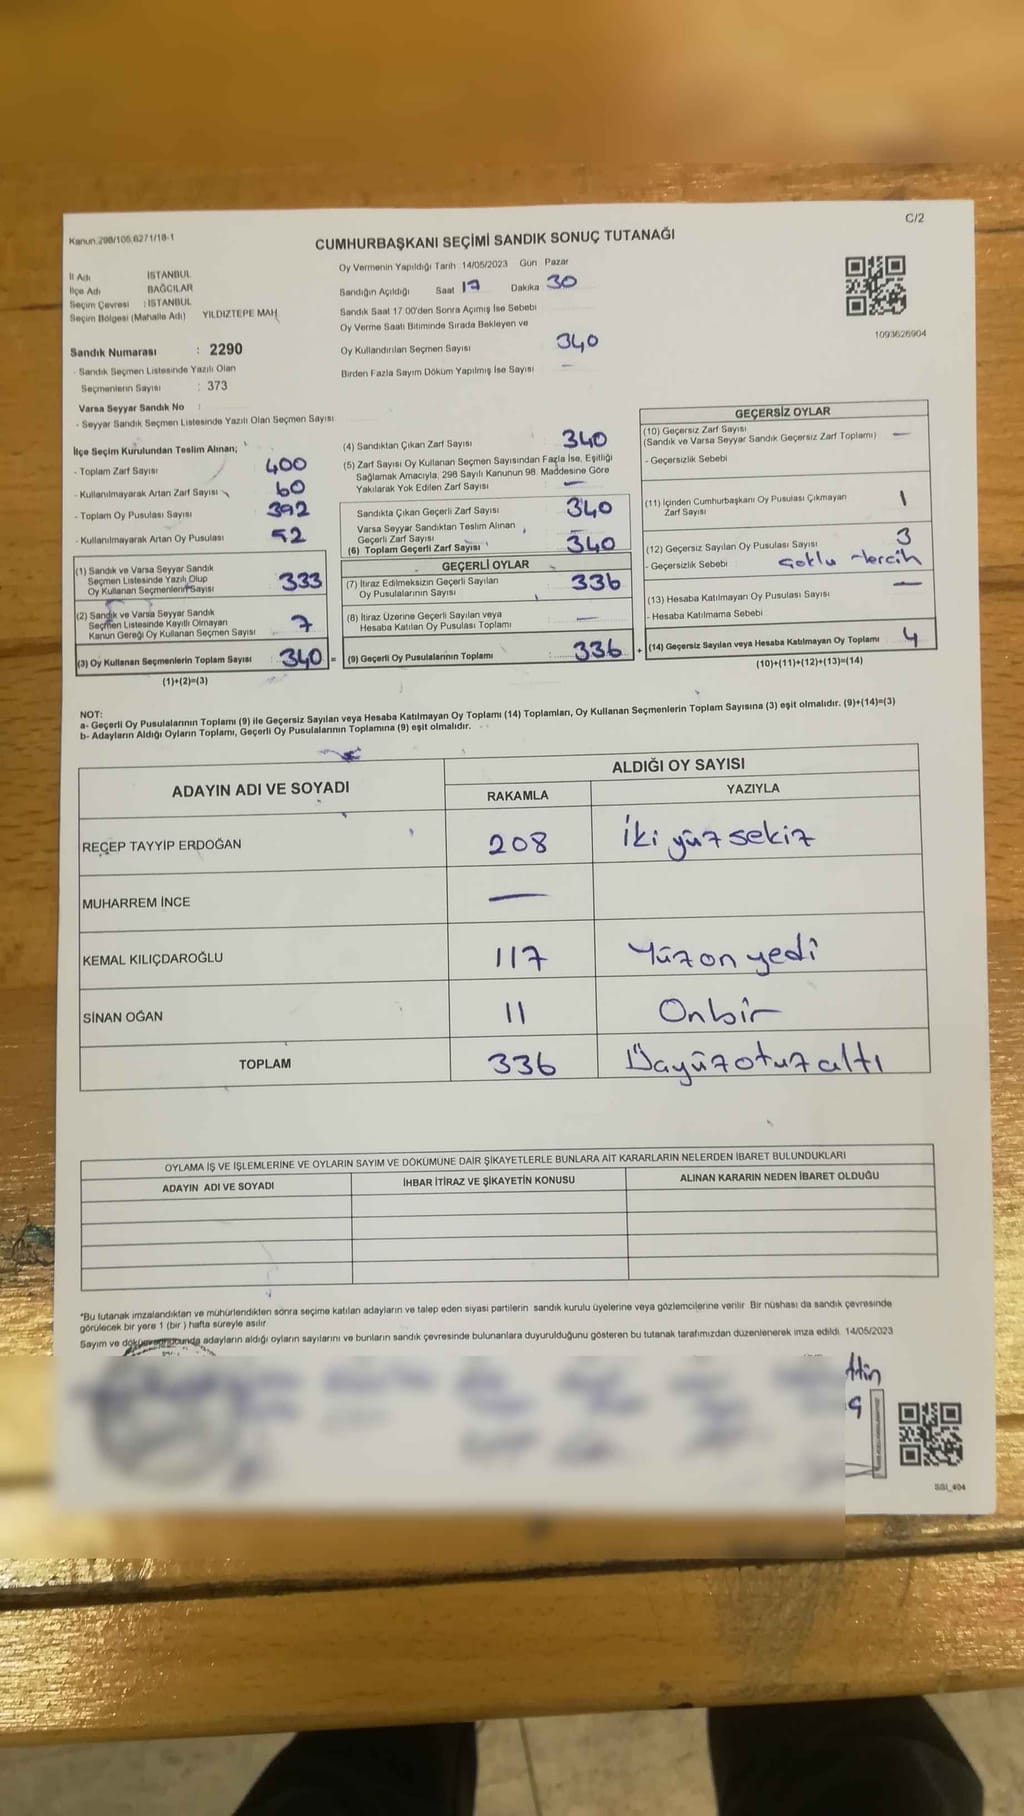 C/2
Kanun.298/106,6271/18-1
CUMHURBAŞKANI SEÇİMİ SANDIK SONUÇ TUTANAĞI
İl Adı İSTANBUL
İlçe Adı BAĞCILAR
Seçim Çevresi : İSTANBUL
Seçim Bölgesi (Mahalle Adı) YILDIZTEPE MAH.
Sandık Numarası : 2290
- Sandık Seçmen Listesinde Yazılı Olan
Seçmenlerin Sayısı : 373
Varsa Seyyar Sandık No :
- Seyyar Sandık Seçmen Listesinde Yazılı Olan Seçmen Sayısı
Oy Vermenin Yapıldığı Tarih 14/05/2023 Gün Pazar
Sandığın Açıldığı Saat 17 Dakika 30
Sandık Saat 17 00'den Sonra Açımış İse Sebebi
Oy Verme Saati Bitiminde Sırada Bekleyen ve
Oy Kullandırılan Seçmen Sayısı 340
Birden Fazla Sayım Döküm Yapılmış İse Sayısı —
1093626904
İlçe Seçim Kurulundan Teslim Alınan;
- Toplam Zarf Sayısı 400
- Kullanılmayarak Artan Zarf Sayısı 60
- Toplam Oy Pusulası Sayısı 392
- Kullanılmayarak Artan Oy Pusulası 52
(1) Sandık ve Varsa Seyyar Sandık
Seçmen Listesinde Yazılı Olup
Oy Kullanan Seçmenlerin Sayısı 333
(2) Sandık ve Varsa Seyyar Sandık
Seçmen Listesinde Kayıtlı Olmayan
Kanun Gereği Oy Kullanan Seçmen Sayısı 7
(3) Oy Kullanan Seçmenlerin Toplam Sayısı : 340 =
(1)+(2)=(3)
(4) Sandıktan Çıkan Zarf Sayısı 340
(5) Zarf Sayısı Oy Kullanan Seçmen Sayısından Fazla İse, Eşitliği
Sağlamak Amacıyla, 298 Sayılı Kanunun 98. Maddesine Göre
Yakılarak Yok Edilen Zarf Sayısı —
Sandıkta Çıkan Geçerli Zarf Sayısı 340
Varsa Seyyar Sandıktan Teslim Alınan
Geçerli Zarf Sayısı
(6) Toplam Geçerli Zarf Sayısı 340
GEÇERLİ OYLAR
(7) İtiraz Edilmeksizin Geçerli Sayılan
Oy Pusulalarının Sayısı 336
(8) İtiraz Üzerine Geçerli Sayılan veya
Hesaba Katılan Oy Pusulası Toplamı —
(9) Geçerli Oy Pusulalarının Toplamı : 336 +
GEÇERSİZ OYLAR
(10) Geçersiz Zarf Sayısı
(Sandık ve Varsa Seyyar Sandık Geçersiz Zarf Toplamı) —
- Geçersizlik Sebebi
(11) İçinden Cumhurbaşkanı Oy Pusulası Çıkmayan
Zarf Sayısı 1
(12) Geçersiz Sayılan Oy Pusulası Sayısı 3
- Geçersizlik Sebebi Çoklu tercih
(13) Hesaba Katılmayan Oy Pusulası Sayısı —
- Hesaba Katılmama Sebebi
(14) Geçersiz Sayılan veya Hesaba Katılmayan Oy Toplamı 4
(10)+(11)+(12)+(13)=(14)
NOT:
a- Geçerli Oy Pusulalarının Toplamı (9) ile Geçersiz Sayılan veya Hesaba Katılmayan Oy Toplamı (14) Toplamları, Oy Kullanan Seçmenlerin Toplam Sayısına (3) eşit olmalıdır. (9)+(14)=(3)
b- Adayların Aldığı Oyların Toplamı, Geçerli Oy Pusulalarının Toplamına (9) eşit olmalıdır.
ADAYIN ADI VE SOYADI ALDIĞI OY SAYISI
RAKAMLA YAZIYLA
REÇEP TAYYİP ERDOĞAN 208 İki yüz sekiz
MUHARREM İNCE —
KEMAL KILIÇDAROĞLU 117 Yüz on yedi
SİNAN OĞAN 11 Onbir
TOPLAM 336 Üçyüzotuzaltı
OYLAMA İŞ VE İŞLEMLERİNE VE OYLARIN SAYIM VE DÖKÜMÜNE DAİR ŞİKAYETLERLE BUNLARA AİT KARARLARIN NELERDEN İBARET BULUNDUKLARI
ADAYIN ADI VE SOYADI İHBAR İTİRAZ VE ŞİKAYETİN KONUSU ALINAN KARARIN NEDEN İBARET OLDUĞU
*Bu tutanak imzalandıktan ve mühürlendikten sonra seçime katılan adayların ve talep eden siyasi partilerin sandık kurulu üyelerine veya gözlemcilerine verilir Bir nüshası da sandık çevresinde
görülecek bir yere 1 (bir) hafta süreyle asılır
Sayım ve döküm sonucunda adayların aldığı oyların sayılarını ve bunların sandık çevresinde bulunanlara duyurulduğunu gösteren bu tutanak tarafımızdan düzenlenerek imza edildi. 14/05/2023